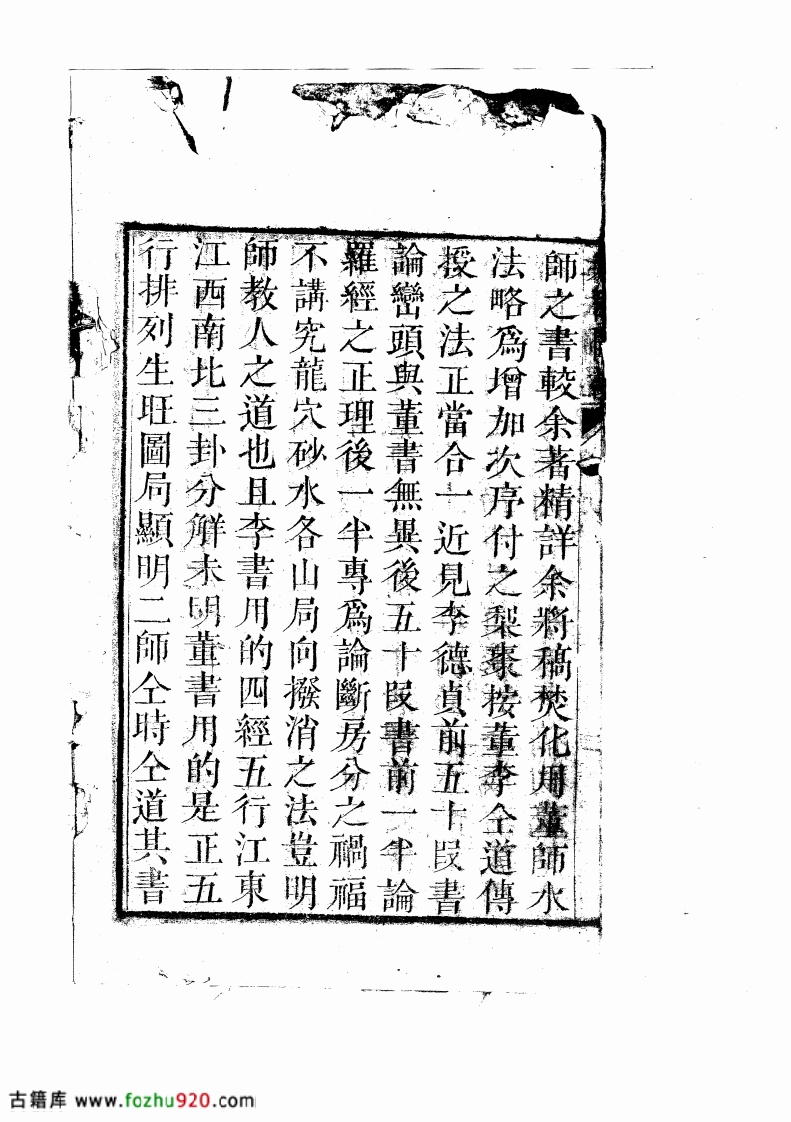 師之書較余著精詳余將稿焚化用董師水
法略為增加次序付之梨棗按董李仝道傳
授之法正當合一近見李德貞前五十段書
論巒頭與董書無異後五十段書前一半論
羅經之正理後一半專為論斷房分之禍福
不講究龍穴砂水各山局向撥消之法豈明
師教人之道也且李書用的四經五行江東
江西南北三卦分觧未明董書用的是正五
行排列生旺圖局顯明二師仝時仝道其書
古籍库 www.fozhu920.com